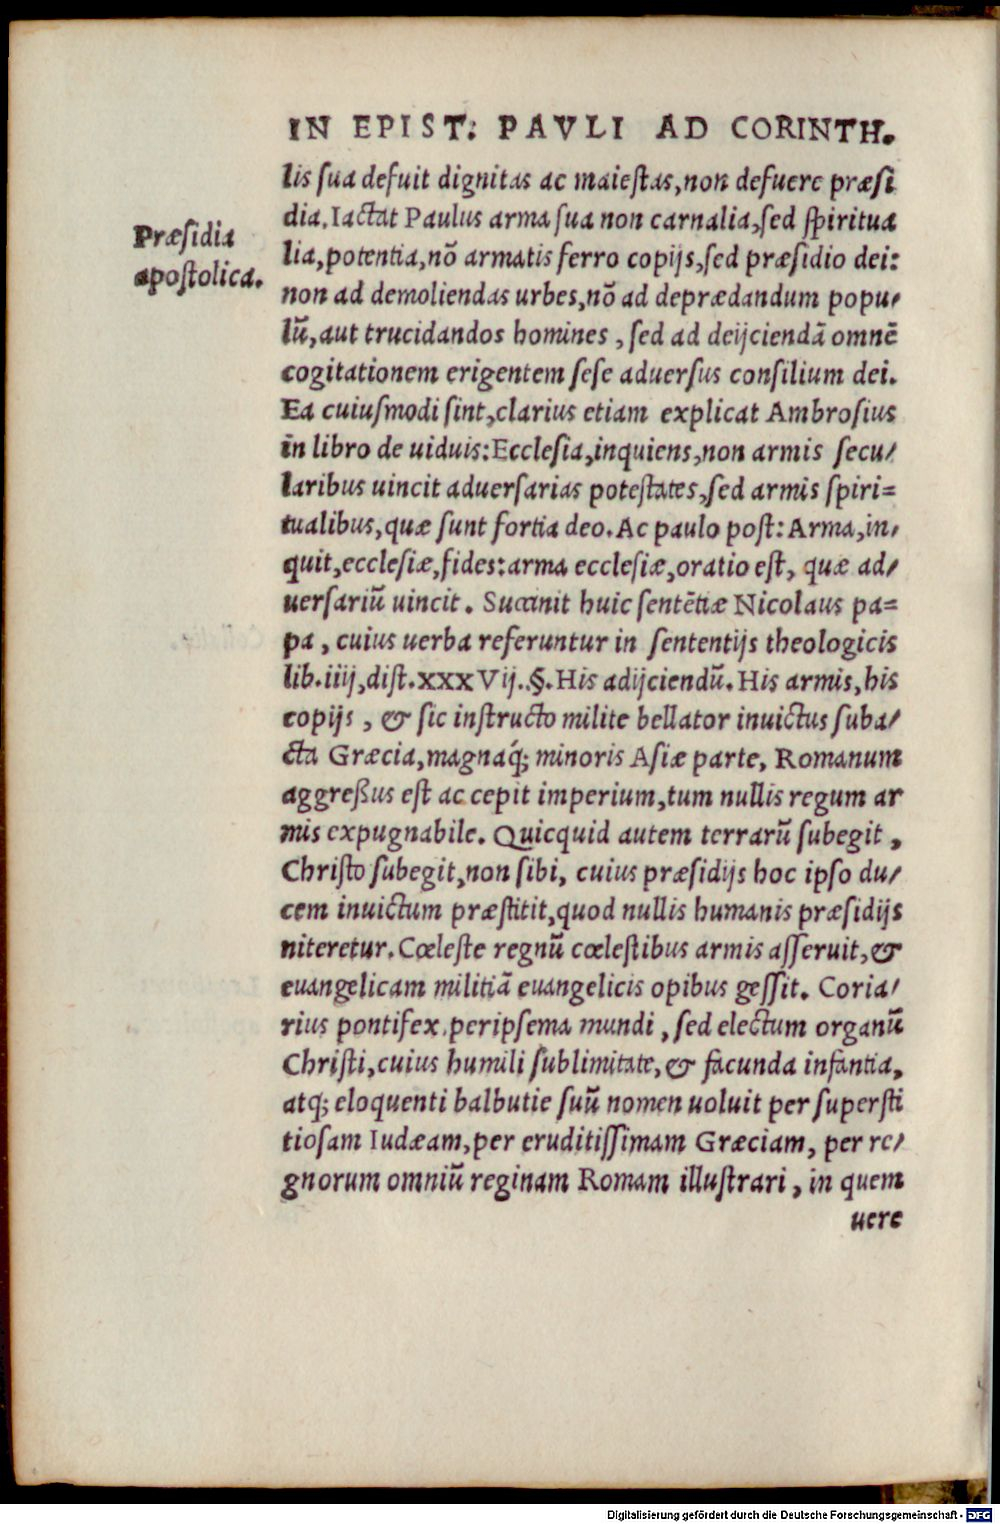 IN EPIST: PAVLI AD CORINTH.
lis sua defuit dignitas ac maiestas, non defuere præsi
dia. Iactat Paulus arma sua non carnalia, sed spiritua
Præsidia
apostolica.
lia, potentia, nō armatis ferro copijs, sed præsidio dei:
non ad demoliendas urbes, nō ad deprædandum popu/
lū, aut trucidandos homines, sed ad deijciendā omnē
cogitationem erigentem sese aduersus consilium dei.
Ea cuiusmodi sint, clarius etiam explicat Ambrosius
in libro de uiduis: Ecclesia, inquiens, non armis secu/
laribus uincit aduersarias potestates, sed armis spiri=
tualibus, quæ sunt fortia deo. Ac paulo post: Arma, in/
quit, ecclesiæ, fides: arma ecclesiæ, oratio est, quæ ad/
uersariū uincit. Succinit huic sentētiæ Nicolaus pa=
pa, cuius uerba referuntur in sententijs theologicis
lib. iiij, dist. xxxVij. §. His adijciendū. His armis, his
copijs, & sic instructo milite bellator inuictus suba/
cta Græcia, magnaq́; minoris Asiæ parte, Romanum
aggreßus est ac cepit imperium, tum nullis regum ar
mis expugnabile. Quicquid autem terrarū subegit,
Christo subegit, non sibi, cuius præsidijs hoc ipso du/
cem inuictum præstitit, quod nullis humanis præsidijs
niteretur. Cœleste regnū cœlestibus armis asseruit, &
euangelicam militiā euangelicis opibus gessit. Coria/
rius pontifex, peripsema mundi, sed electum organū
Christi, cuius humili sublimitate, & facunda infantia,
atq; eloquenti balbutie suū nomen uoluit per supersti
tiosam Iudæam, per eruditissimam Græciam, per re/
gnorum omniū reginam Romam illustrari, in quem
uere
Digitalisierung gefördert durch die Deutsche Forschungsgemeinschaft - DFG